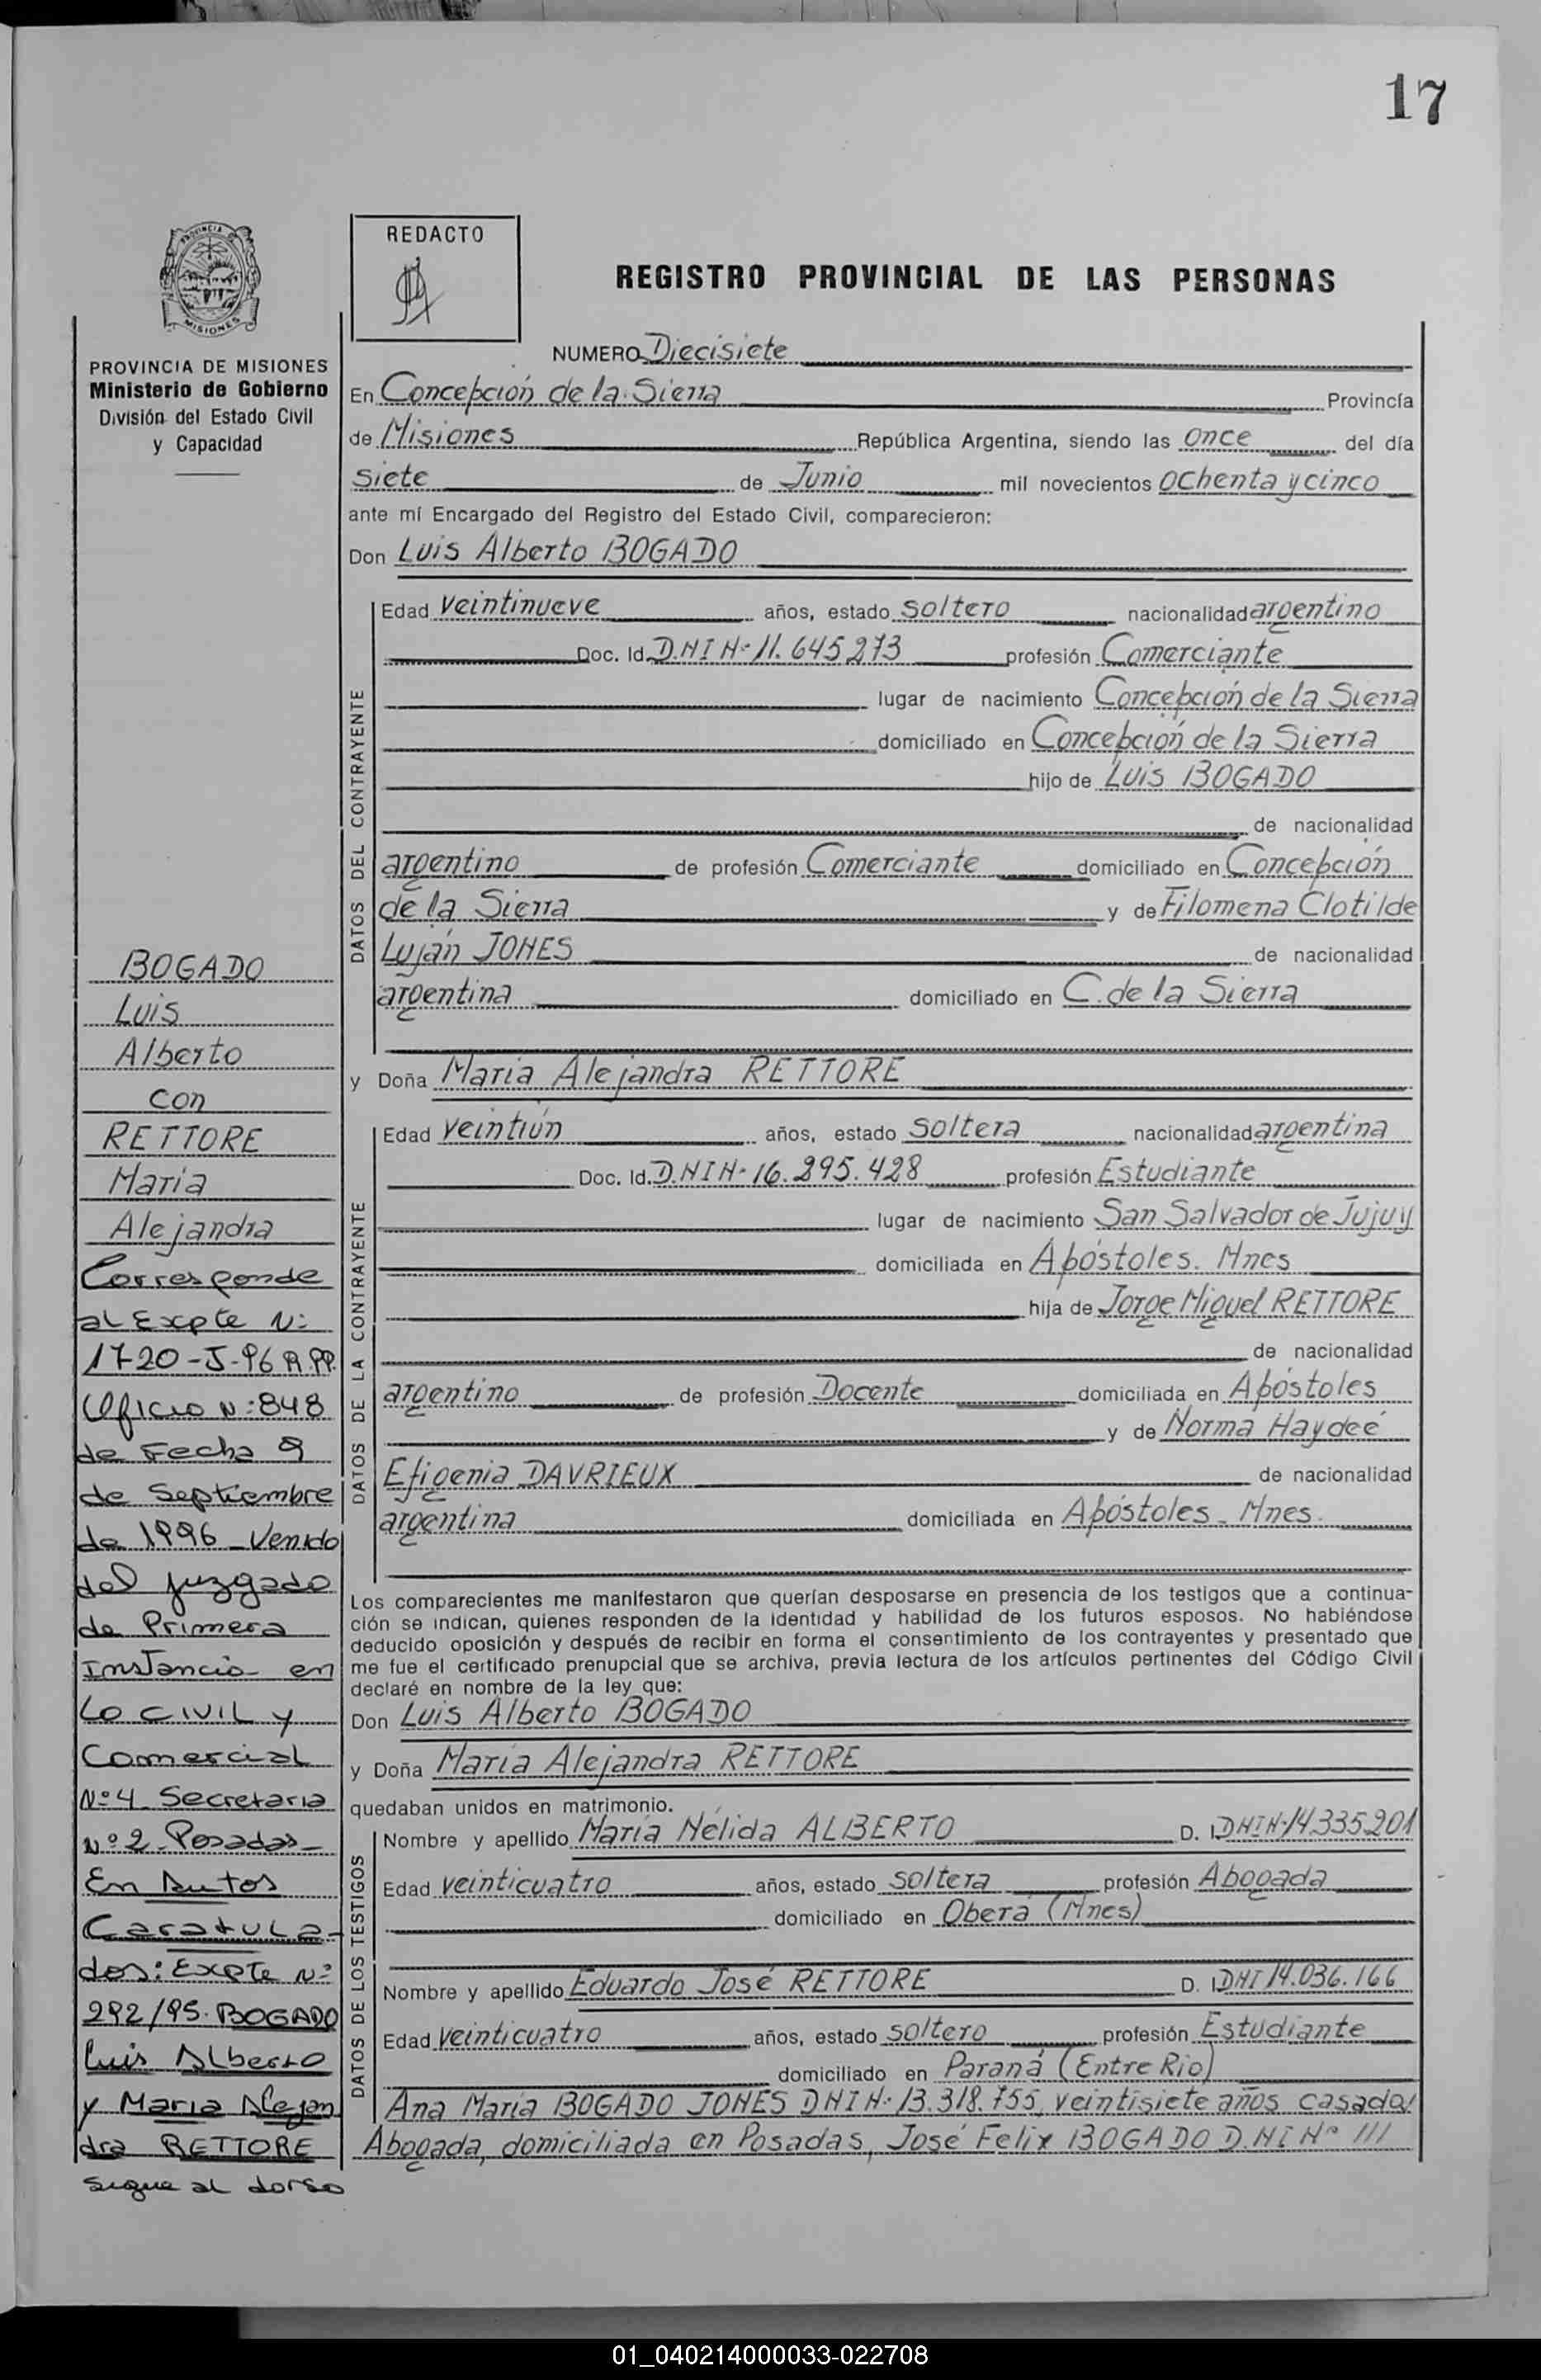 17
PROVINCIA
MISIONES
REDACTO
REGISTRO PROVINCIAL DE LAS PERSONAS
PROVINCIA DE MISIONES
Ministerio de Gobierno
División del Estado Civil
y Capacidad
NUMERO Diecisiete
En Concepción de la Sierra Provincia
de Misiones República Argentina, siendo las once del día
siete de Junio mil novecientos ochenta y cinco
ante mí Encargado del Registro del Estado Civil, comparecieron:
Don Luis Alberto BOGADO
DATOS DEL CONTRAYENTE
Edad veintinueve años, estado soltero nacionalidad argentino
Doc. Id. D.N I N° 11. 645 273 profesión Comerciante
lugar de nacimiento Concepción de la Sierra
domiciliado en Concepción de la Sierra
hijo de Luis BOGADO
de nacionalidad
argentino de profesión Comerciante domiciliado en Concepción
de la Sierra y de Filomena Clotilde
Luján JONES de nacionalidad
argentina domiciliado en C. de la Sierra
y Doña María Alejandra RETTORE
DATOS DE LA CONTRAYENTE
Edad veintiún años, estado soltera nacionalidad argentina
Doc. Id. D.N I N° 16. 295. 428 profesión Estudiante
lugar de nacimiento San Salvador de Jujuy
domiciliada en Apóstoles. Mnes
hija de Jorge Miguel RETTORE
de nacionalidad
argentino de profesión Docente domiciliada en Apóstoles
y de Norma Haydeé
Efigenia DAVRIEUX de nacionalidad
argentina domiciliada en Apóstoles - Mnes.
Los comparecientes me manifestaron que querían desposarse en presencia de los testigos que a continua-
ción se indican, quienes responden de la identidad y habilidad de los futuros esposos. No habiéndose
deducido oposición y después de recibir en forma el consentimiento de los contrayentes y presentado que
me fue el certificado prenupcial que se archiva, previa lectura de los artículos pertinentes del Código Civil
declaré en nombre de la ley que:
Don Luis Alberto BOGADO
y Doña María Alejandra RETTORE
quedaban unidos en matrimonio.
DATOS DE LOS TESTIGOS
Nombre y apellido María Nélida ALBERTO D. I. DNI N° 14.335.201
Edad veinticuatro años, estado soltera profesión Abogada
domiciliado en Oberá (Mnes)
Nombre y apellido Eduardo José RETTORE D. I. DNI 14.036.166
Edad veinticuatro años, estado soltero profesión Estudiante
domiciliado en Paraná (Entre Rio)
Ana María BOGADO JONES DNI N° 13.318.755, veintisiete años casada/
Abogada, domiciliada en Posadas, José Felix BOGADO D.NI N° ///
BOGADO
Luis
Alberto
con
RETTORE
María
Alejandra
Corresponde
al Expte N:
1720-J-96 R.PP.
Oficio N:848
de Fecha 9
de Septiembre
de 1996 - Venido
del juzgado
de Primera
Instancia en
Lo CIVIL y
Comercial
N°4 Secretaria
N°2 Posadas -
En Autos
Caratula-
dos: Expte N°
292/95. BOGADO
Luis Alberto
y Maria Alejan
dra RETTORE
sigue al dorso
01_040214000033-022708